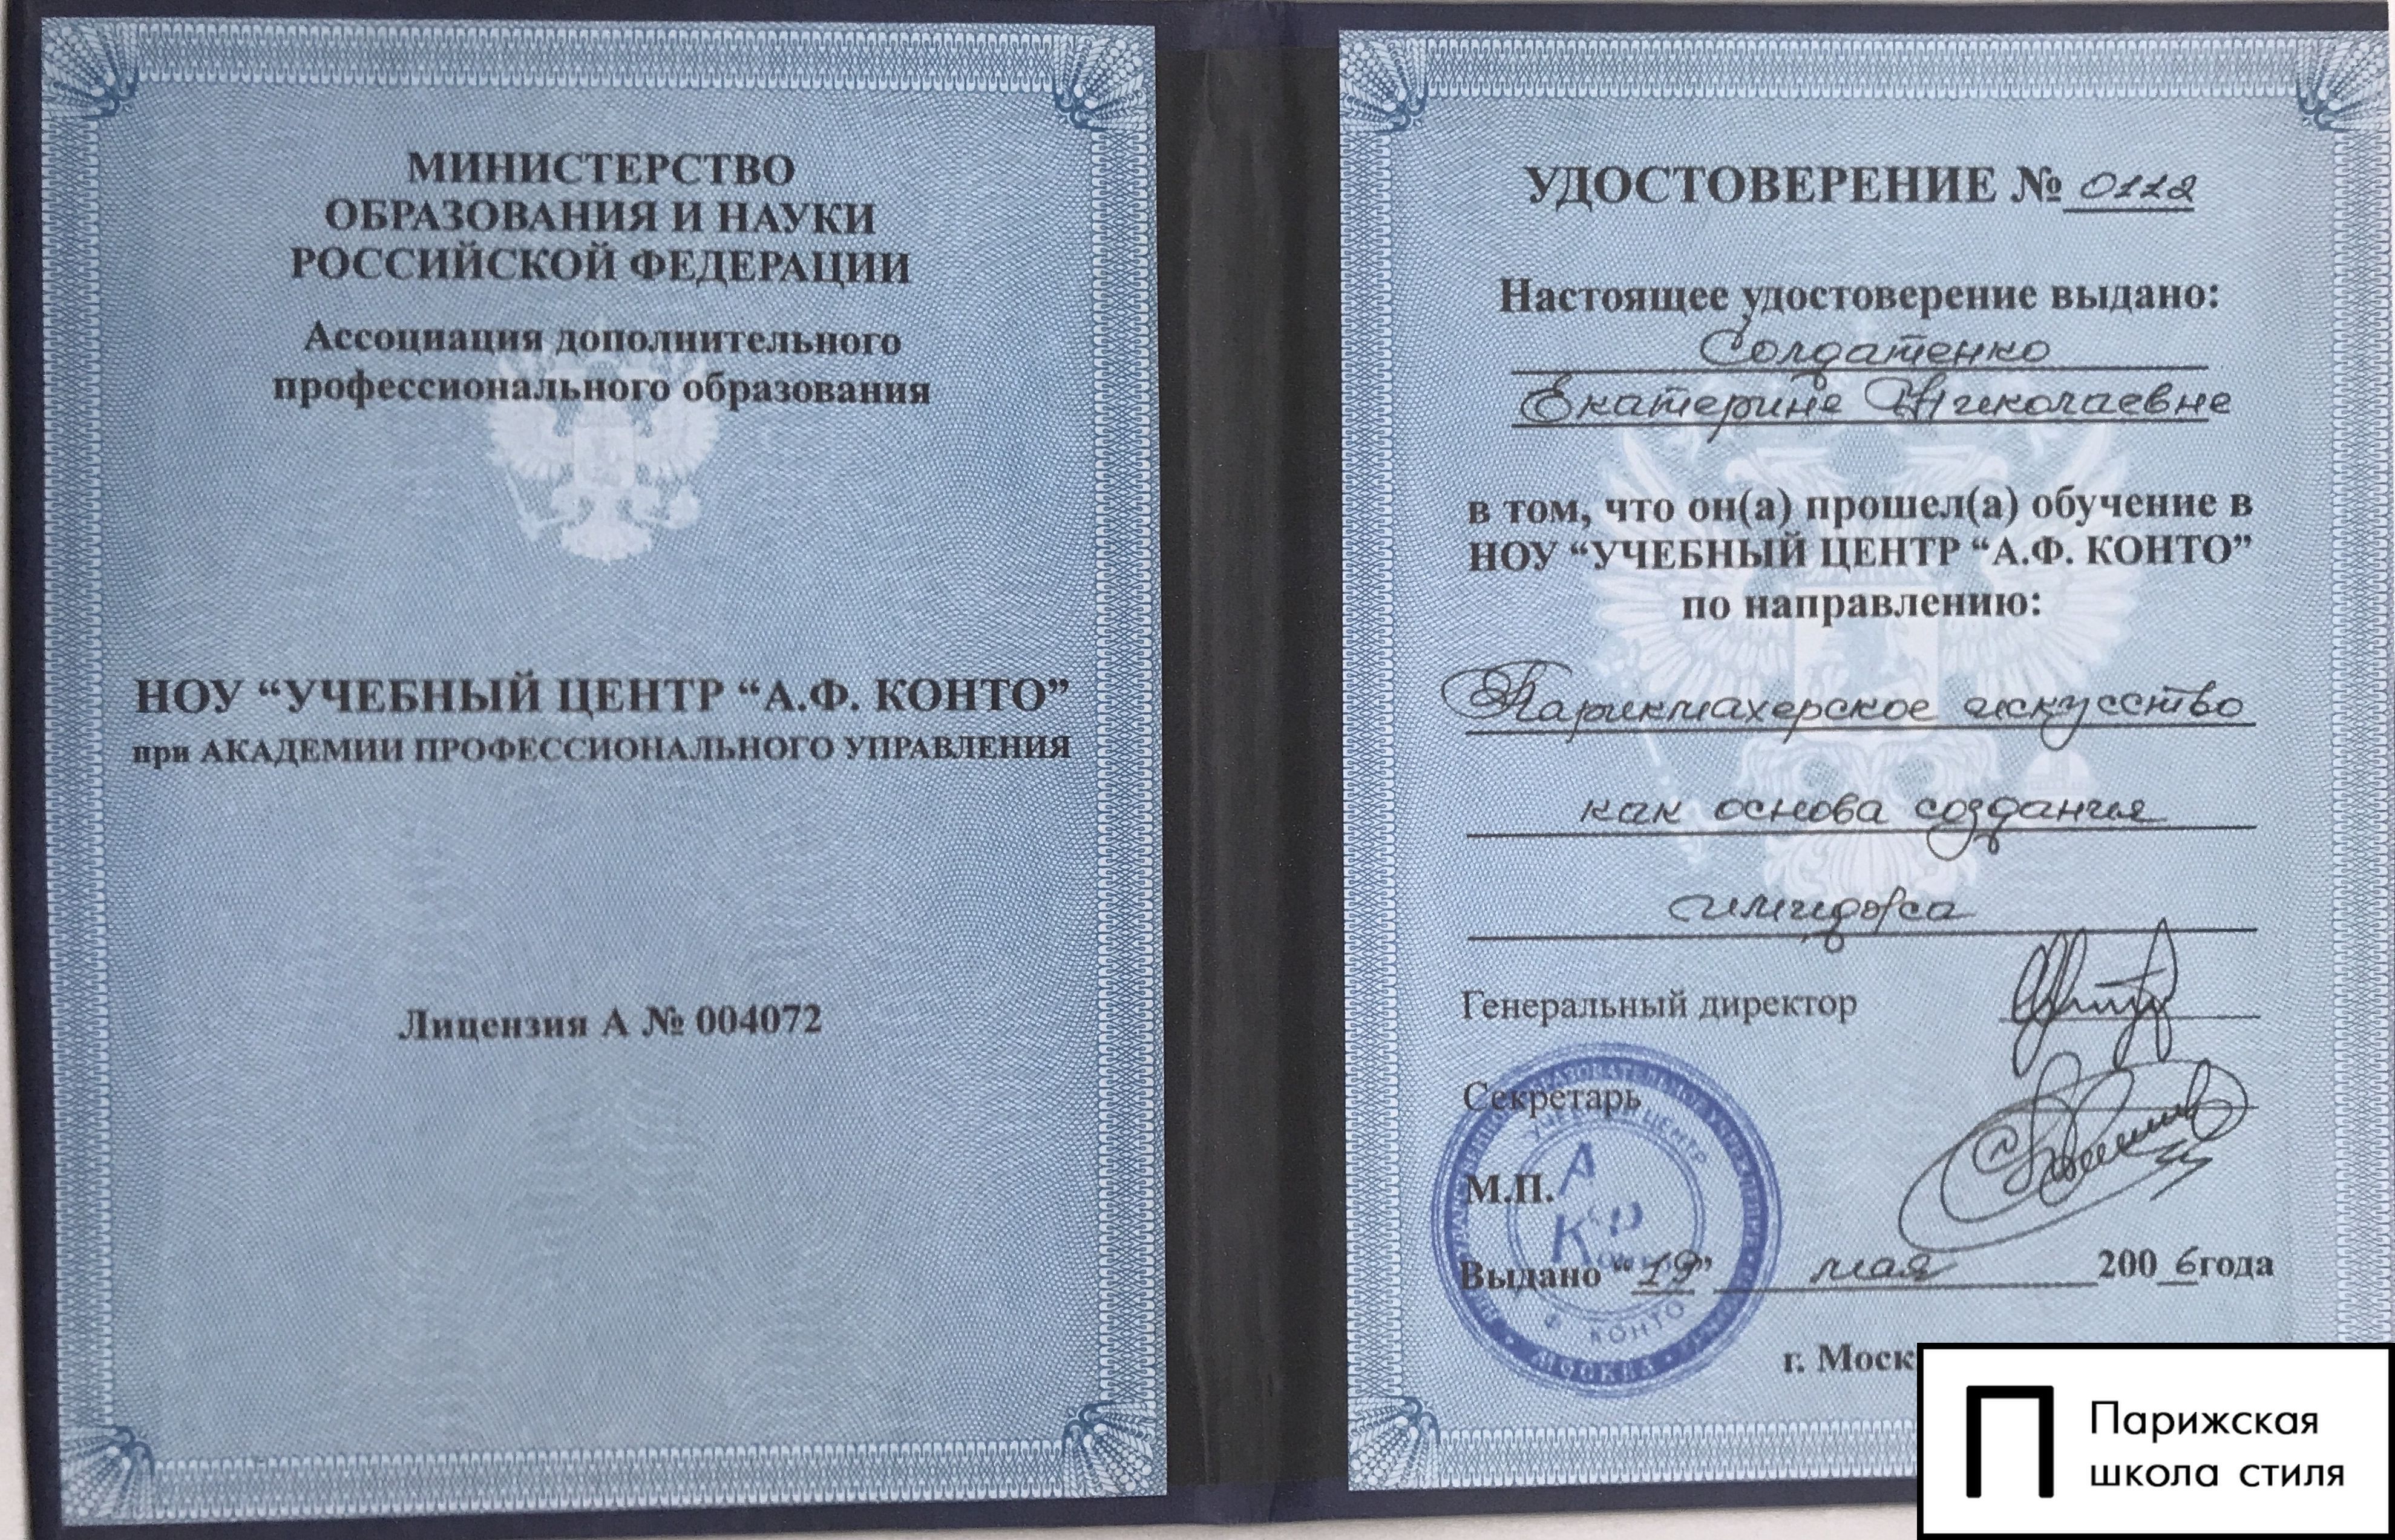 МИНИСТЕРСТВО
ОБРАЗОВАНИЯ И НАУКИ
РОССИЙСКОЙ ФЕДЕРАЦИИ
Ассоциация дополнительного
профессионального образования
НОУ “УЧЕБНЫЙ ЦЕНТР “А.Ф. КОНТО”
при АКАДЕМИИ ПРОФЕССИОНАЛЬНОГО УПРАВЛЕНИЯ
Лицензия А № 004072
УДОСТОВЕРЕНИЕ № 0112
Настоящее удостоверение выдано:
Солдатенко
Екатерине Николаевне
в том, что он(а) прошел(а) обучение в
НОУ “УЧЕБНЫЙ ЦЕНТР “А.Ф. КОНТО”
по направлению:
Парикмахерское искусство
как основа создания
имиджа
Генеральный директор
Секретарь
М.П.
Выдано “19” мая 2006 года
г. Моск
УЧЕБНЫЙ ЦЕНТР
КОНТО
МОСКВА
Парижская
школа стиля